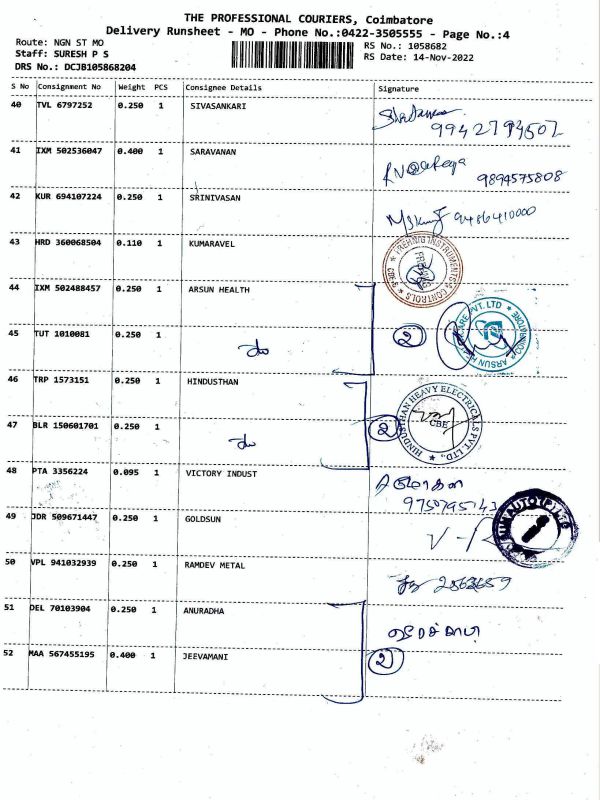 THE PROFESSIONAL COURIERS, Coimbatore
Delivery Runsheet - MO - Phone No.:0422-3505555 - Page No.:4
Route: NGN ST MO
RS No.: 1058682
Staff: SURESH P S
RS Date: 14-Nov-2022
DRS No.: DCJB105868204
S No Consignment No Weight PCS Consignee Details Signature
40 TVL 6797252 0.250 1 SIVASANKARI
41 IXM 502536047 0.400 1 SARAVANAN
9894575808
42 KUR 694107224 0.250 1 SRINIVASAN
9486410000
43 HRD 360068504 0.110 1 KUMARAVEL
44 IXM 502488457 0.250 1 ARSUN HEALTH
45 TUT 1010081 0.250 1 do 2
46 TRP 1573151 0.250 1 HINDUSTHAN
HINDUSTHAN HEAVY ELECTRICALS PVT LTD.,
CBE
47 BLR 150601701 0.250 1 do 2
48 PTA 3356224 0.095 1 VICTORY INDUST
49 JDR 509671447 0.250 1 GOLDSUN
50 VPL 941032939 0.250 1 RAMDEV METAL
2563659
51 DEL 70103904 0.250 1 ANURADHA
52 MAA 567455195 0.400 1 JEEVAMANI 2